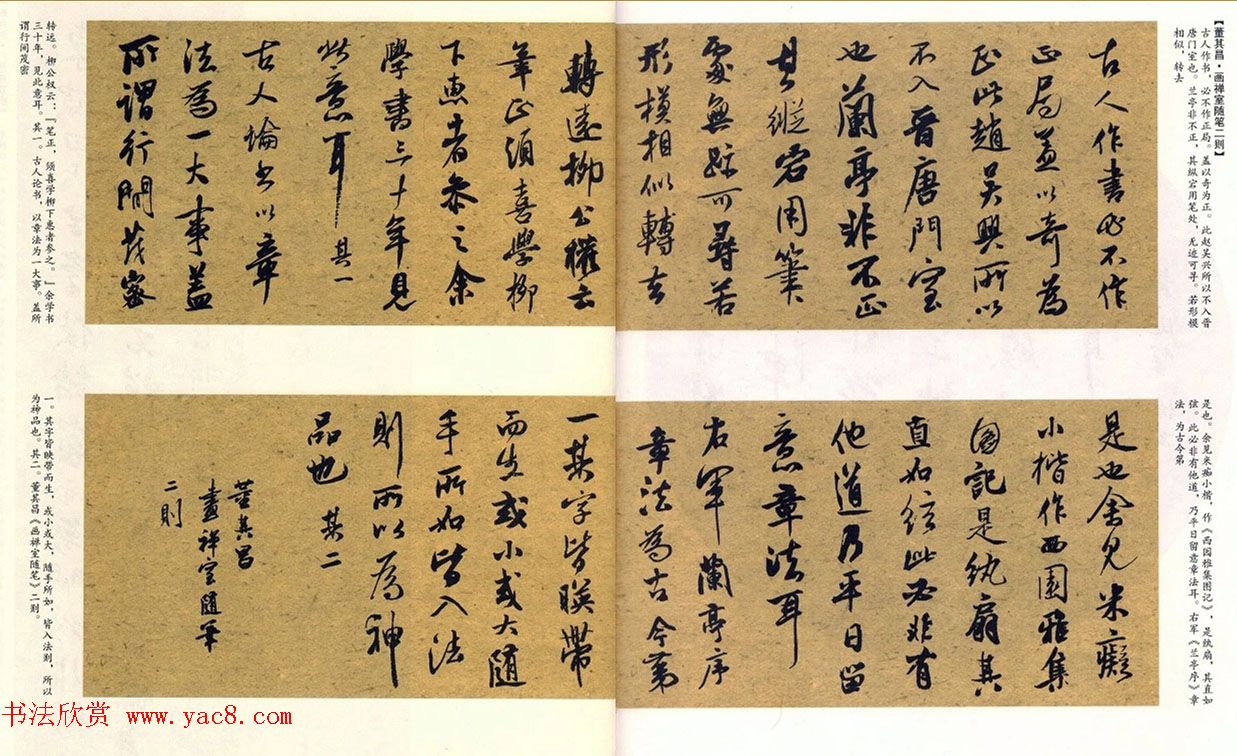 【董其昌·画禅室随笔二则】
古人作书，必不作正局。盖以奇为正。此赵吴兴所以不入晋
唐门室也。兰亭非不正，其纵宕用笔处，无迹可寻。若形模
相似，转去
古人作書必不作
正局盖以奇為
正此趙吴興所以
不入晋唐門室
也蘭亭非不正
其縱宕用筆
處無跡可尋若
形模相似轉去
轉遠柳公權云
筆正須喜學柳
下惠者參之余
學書三十年見
此意耳 其一
古人論書以章
法為一大事盖
所謂行間茂密
转远。柳公权云：「笔正，须喜学柳下惠者参之。」余学书
三十年，见此意耳。其一。古人论书，以章法为一大事。盖所
谓行间茂密
是也。余见米痴小楷，作《西园雅集图记》，是纨扇，其直如
弦。此必非有他道，乃平日留意章法耳。右军《兰亭序》章
法，为古今第
是也余見米癡
小楷作西園雅集
圖記是紈扇其
直如弦此必非有
他道乃平日留
意章法耳
右軍蘭亭序
章法為古今第
一其字皆映帶
而生或小或大随
手所如皆入法
則所以為神
品也 其二
董其昌
畫禅室随筆
二則
一。其字皆映带而生，或小或大，随手所如，皆入法则，所以
为神品也。其二。董其昌《画禅室随笔》二则。
书法欣赏 www.yac8.com